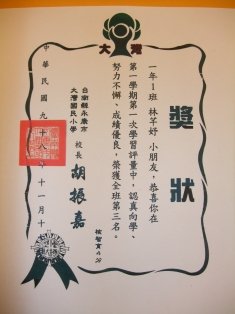 大灣
獎狀
一年1班 林芊妤 小朋友，恭喜你在
第一學期第一次學習評量中，認真向學、
努力不懈、成績優良，榮獲全班第三名。
台南縣永康市
大灣國民小學
校長 胡振嘉
中華民國九十八年十一月十